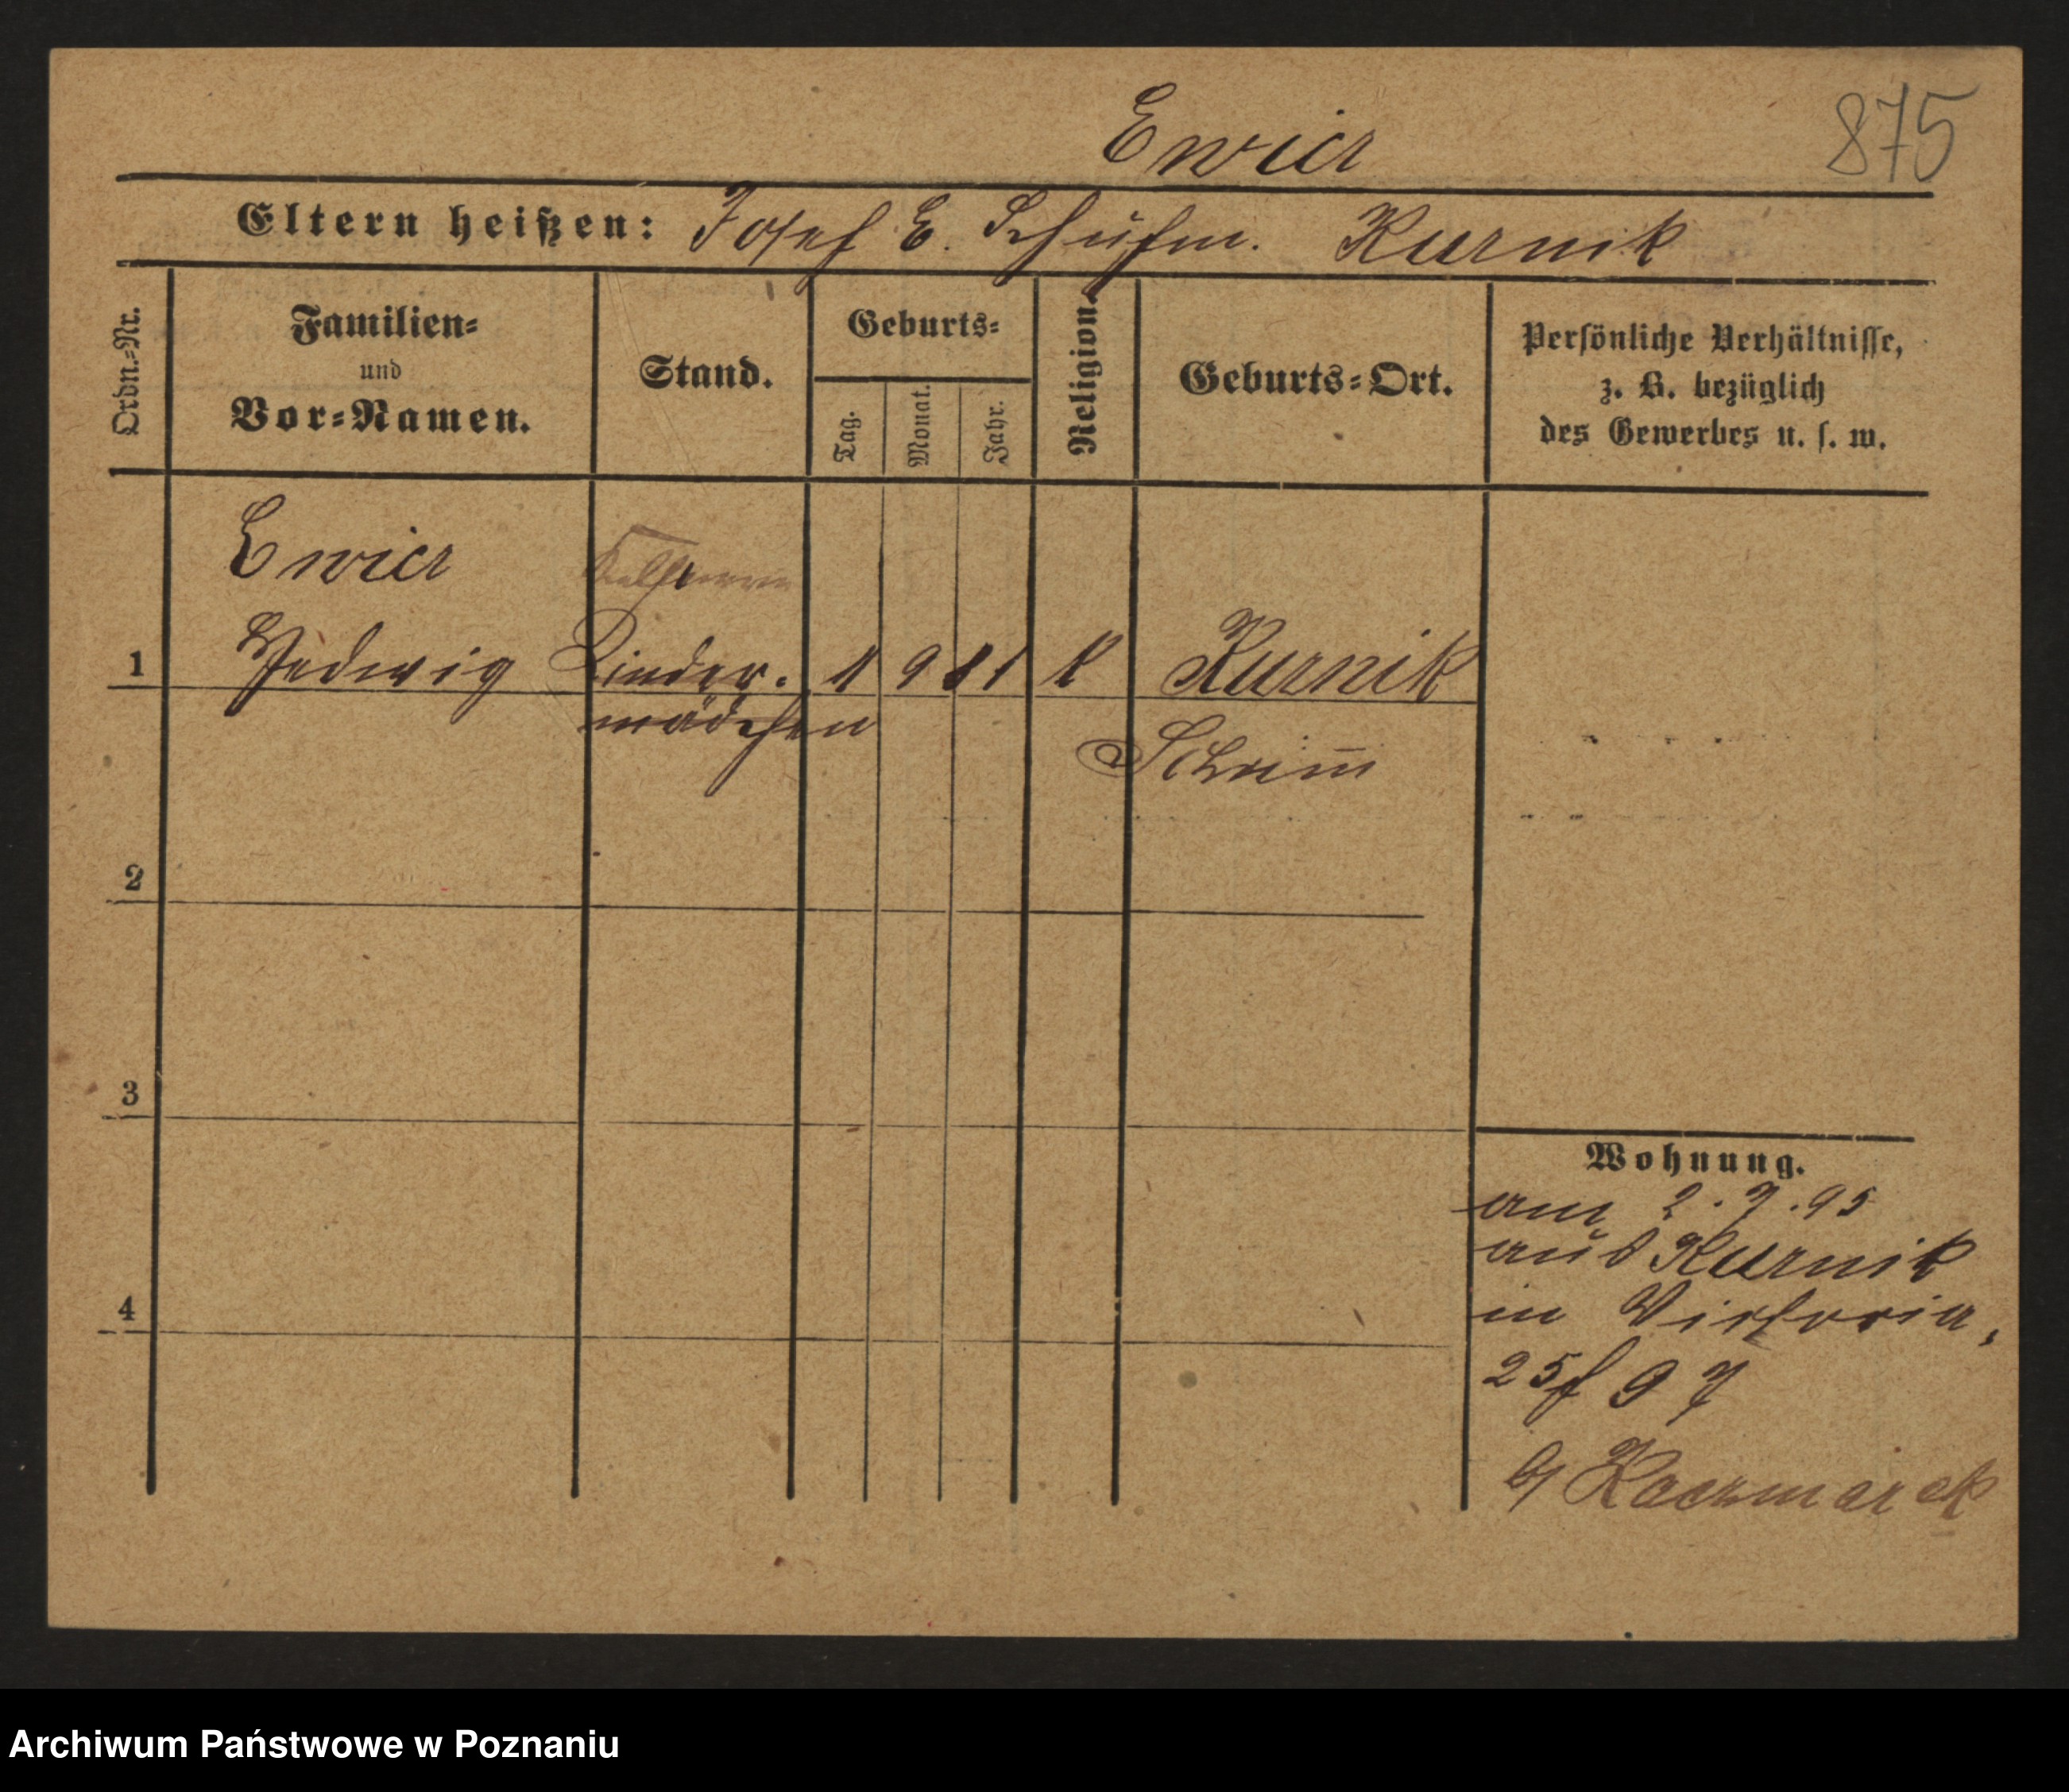 Ewicz
875
Eltern heißen: Josef E. Schuhm. Kurnik
Ordn.-Nr.
Familien-
und
Vor-Namen.
Stand.
Geburts-
Tag.
Monat.
Jahr.
Religion.
Geburts-Ort.
Persönliche Verhältnisse,
z. B. bezüglich
des Gewerbes u. s. w.
Ewicz
1 Hedwig Kinder- 1 9 81 k Kurnik
mädchen
Schrim̅
2
3
4
Wohnung.
am 2.7.95
aus Kurnik
in Victoria,
25 97
b/ Kaczmarek
Archiwum Państwowe w Poznaniu